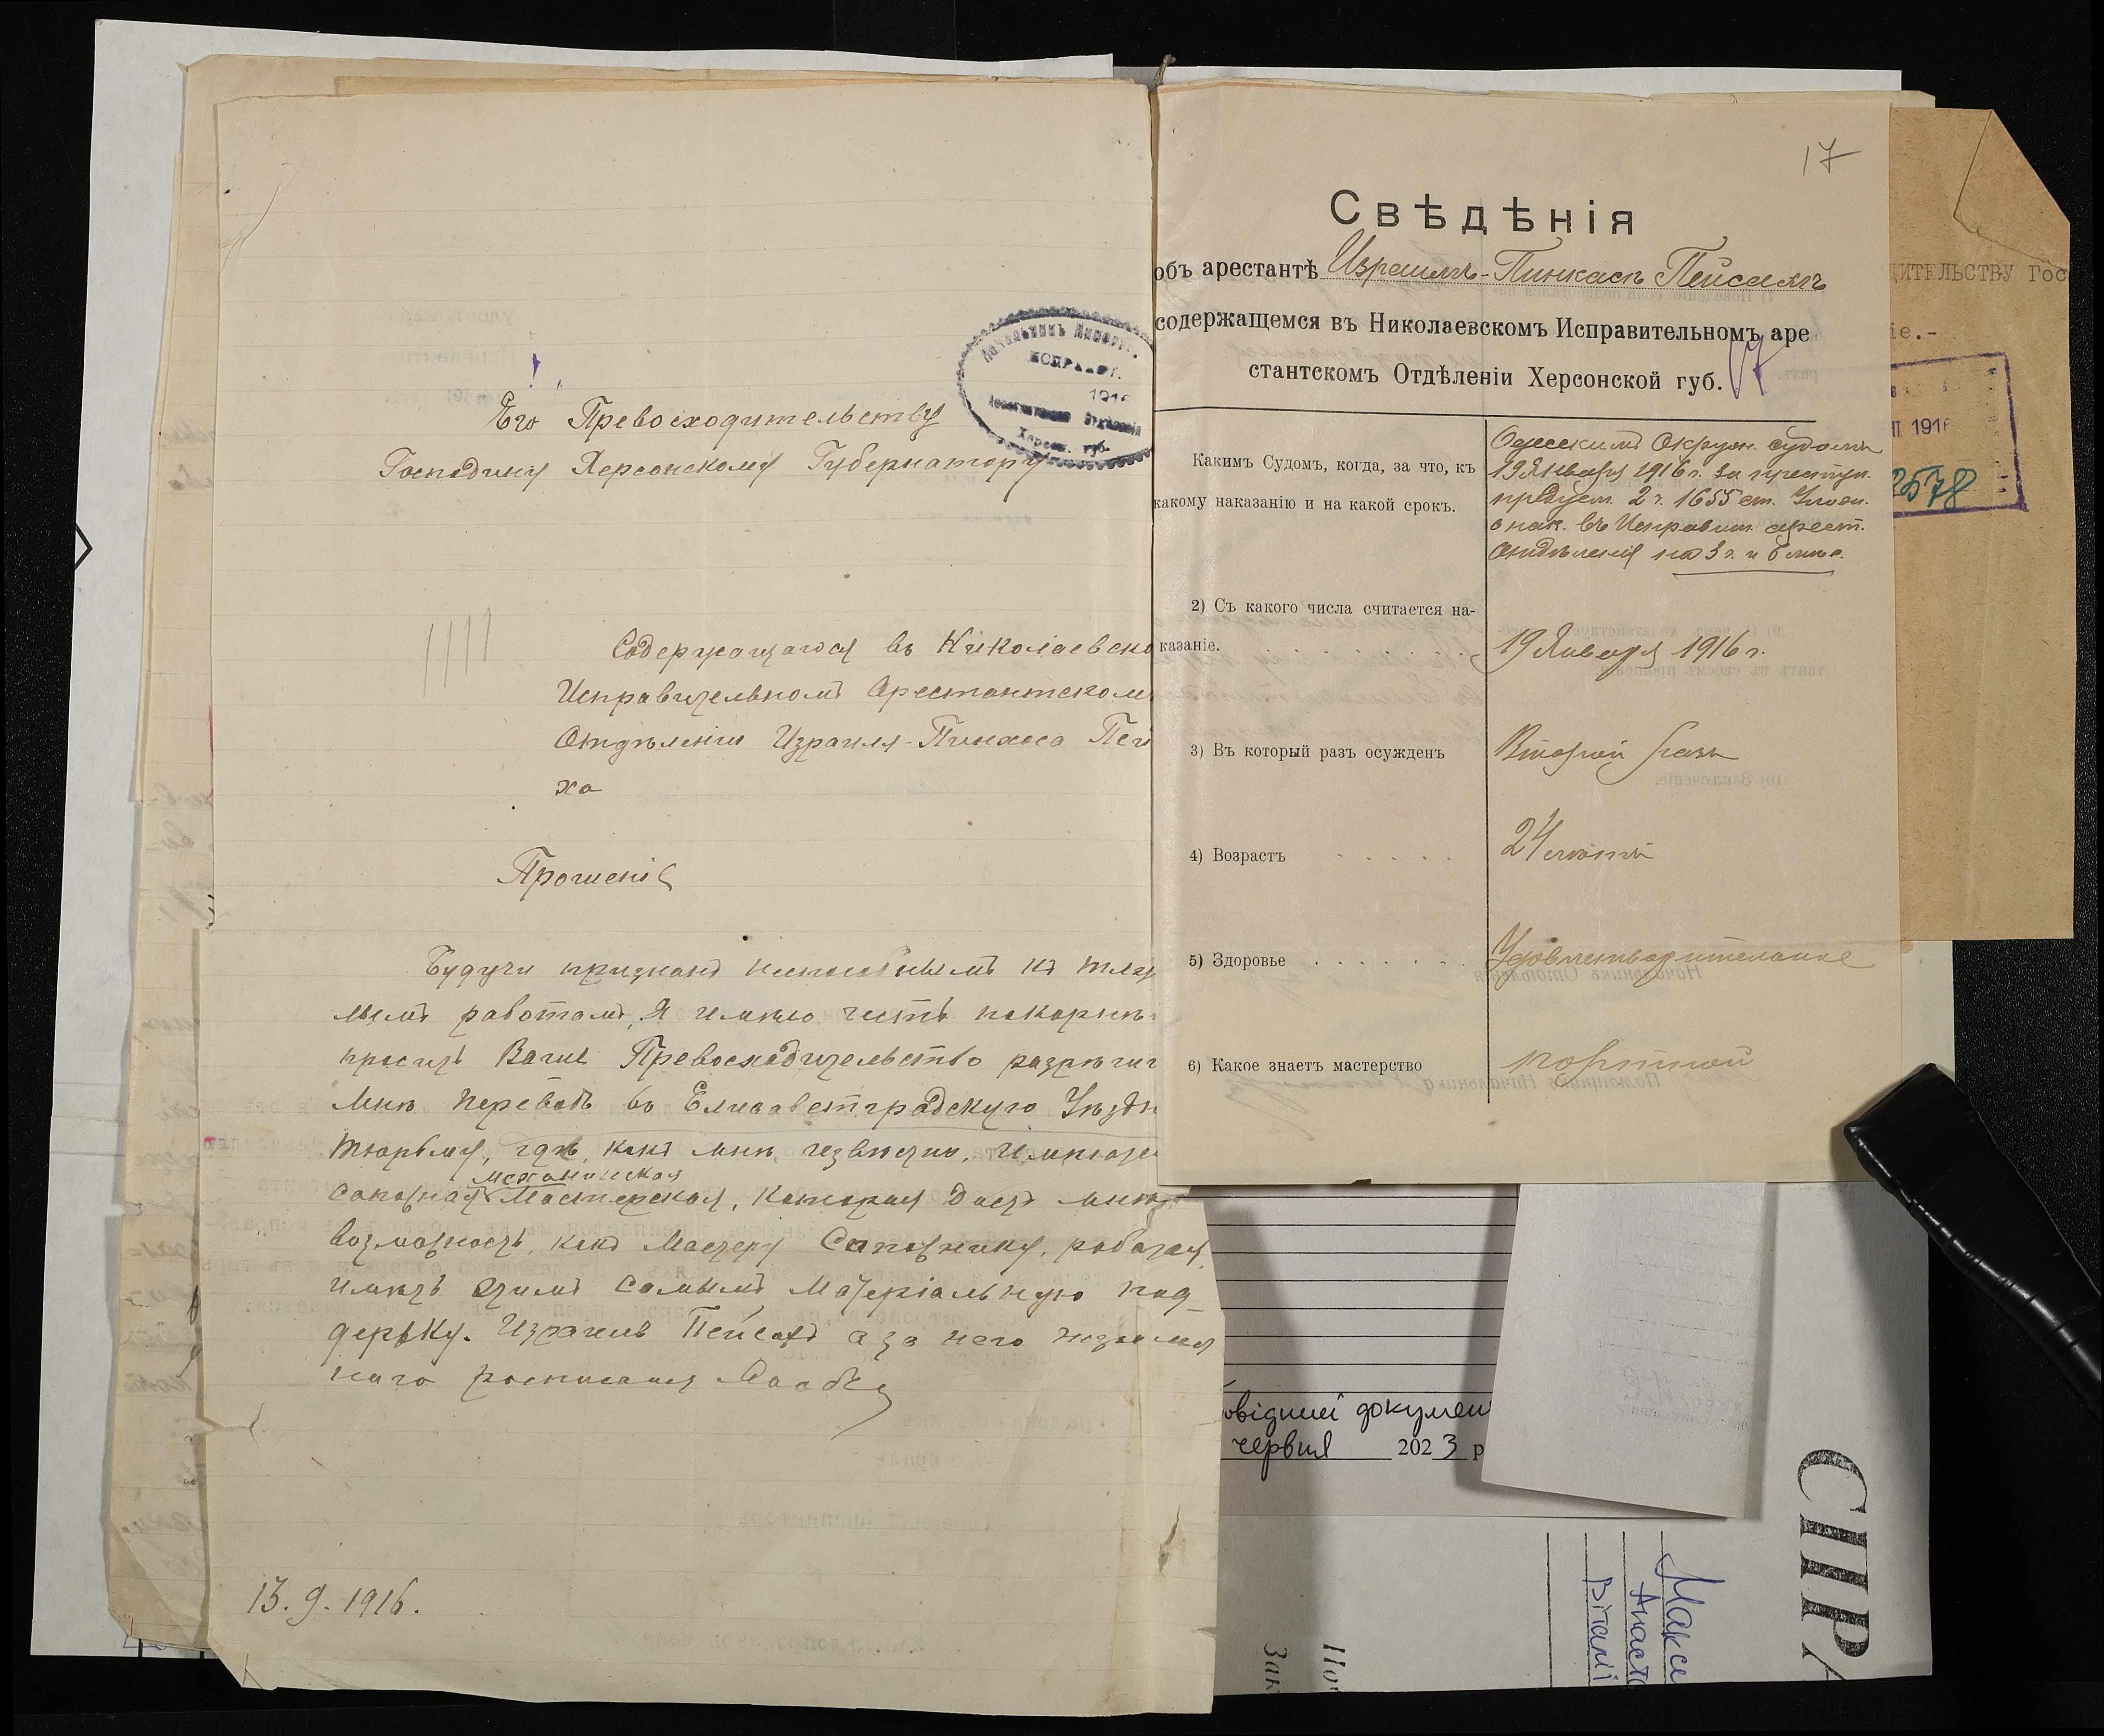 Его Превосходительству
Господину Херсонскому Губернатору
Начальникъ
ИСПРАВИТ.
1916
Херсон. губ.
Содержащагося въ Николаевско
Исправительномъ Арестантскомъ
Отдѣленіи Израиля-Пинхоса Пей
ха
Прошеніе
Будучи признанъ неспособнымъ къ тяж
лымъ работамъ, Я имѣю честь покорнѣ
просить Ваше Превосходительство разрѣшит
мнѣ переводъ въ Елисаветградскую Уѣздн
тюрьму, гдѣ, какъ мнѣ извѣстно, имѣется
механическая
сапожная Мастерская, которая дастъ мнѣ
возможность, какъ Мастеру Сапожнику, работая,
имѣть этимъ самымъ Матеріальную под-
держку. Израиль Пейсахъ а за него
наго росписался
13.9.1916.
17
Свѣдѣнія
объ арестантѣ Израиль-Пинкасъ Пейсахъ
содержащемся въ Николаевскомъ Исправительномъ аре
стантскомъ Отдѣленіи Херсонской губ.
17
Какимъ Судомъ, когда, за что, къ
какому наказанію и на какой срокъ.
Одесскимъ Окружн. судомъ
19 Января 1916 г. за преступ.
предусм. 2 ч. 1655 ст. Улож.
о нак. въ Исправит. арест.
отдѣленія на 3 г. и 6 мѣс.
2) Съ какого числа считается на-
казаніе.
19 Января 1916 г.
3) Въ который разъ осужденъ
Второй разъ
4) Возрастъ
24 лѣтъ
5) Здоровье
Удовлетворительное
6) Какое знаетъ мастерство
портной
ИТЕЛЬСТВУ Гос
іе.-
1916
2578
овідний докумен
червня 2023 р
СПРА
Макси
Анаста
Віталії
Зак